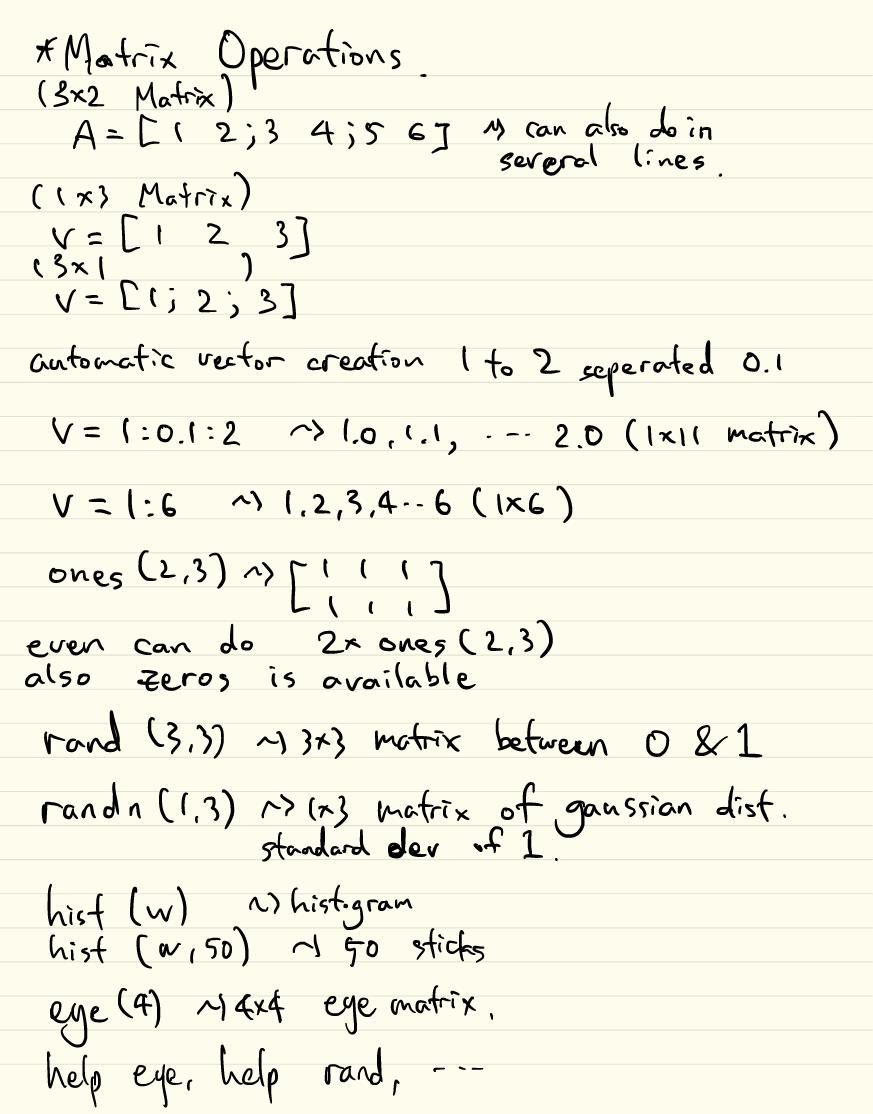 *Matrix Operations.
(3x2 Matrix)
A = [1 2 ; 3 4 ; 5 6] ~> can also do in
several lines.
(1x3 Matrix)
V = [1 2 3]
(3x1 )
V = [1; 2; 3]
automatic vector creation 1 to 2 seperated 0.1
V = 1:0.1:2 ~> 1.0, 1.1, ... 2.0 (1x11 matrix)
V = 1:6 ~> 1,2,3,4.. 6 (1x6)
ones (2,3) ~> [1 1 1
1 1 1]
even can do 2x ones (2,3)
also zeros is available
rand (3,3) ~> 3x3 matrix between 0 & 1
randn (1,3) ~> 1x3 matrix of gaussian dist.
standard dev of 1.
hist (w) ~> histogram
hist (w,50) ~> 50 sticks
eye (4) ~> 4x4 eye matrix.
help eye, help rand, ---